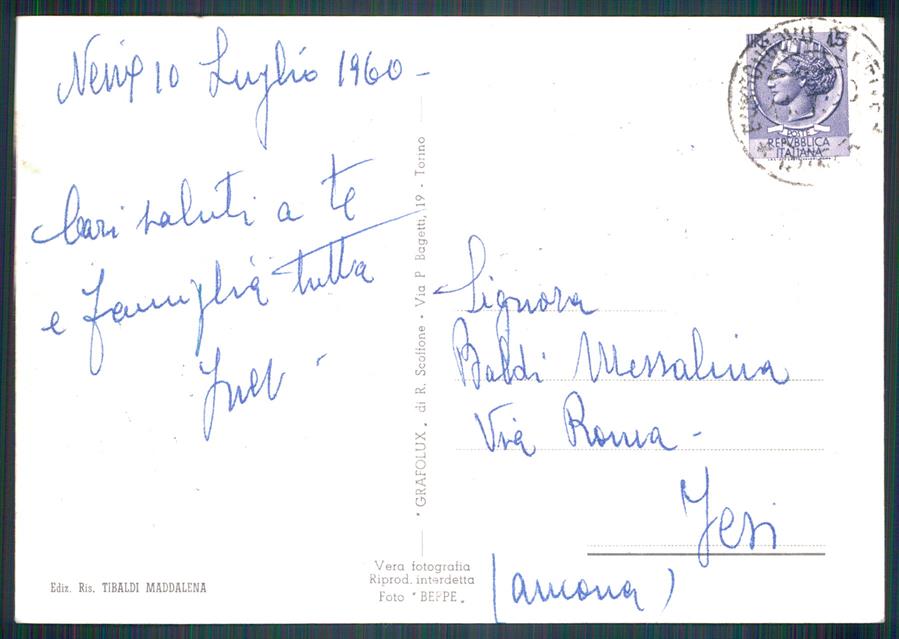 10 Luglio 1960 -
Cari saluti a te
e famiglia tutta
"GRAFOLUX" di R. Scoffone - Via P. Bagetti, 19 - Torino
LIRE 15
POSTE
REPVBBLICA
ITALIANA
Signora
Baldi Messalina
Via Roma -
Jesi
(Ancona)
Vera fotografia
Riprod. interdetta
Foto "BEPPE"
Ediz. Ris. TIBALDI MADDALENA